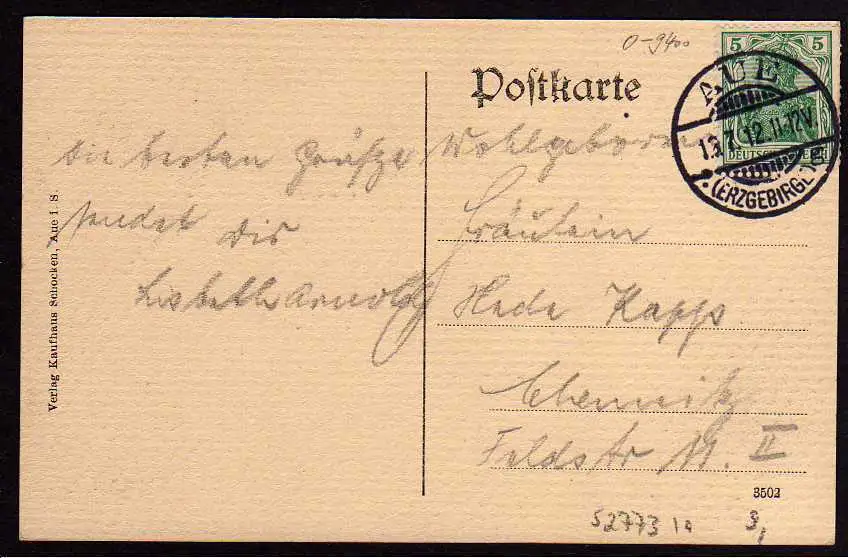 0-9400
Postkarte
5 5
DEUTSCHES REICH
AUE
13.7.12.11-12V.
(ERZGEBIRGE)
die besten Grüße
sendet dir
Lisbeth Arnold
Wohlgeboren
Fräulein
Hede Kapps
Chemnitz
Feldstr 11. II
Verlag Kaufhaus Schocken, Aue i. S.
3502
52773 1a